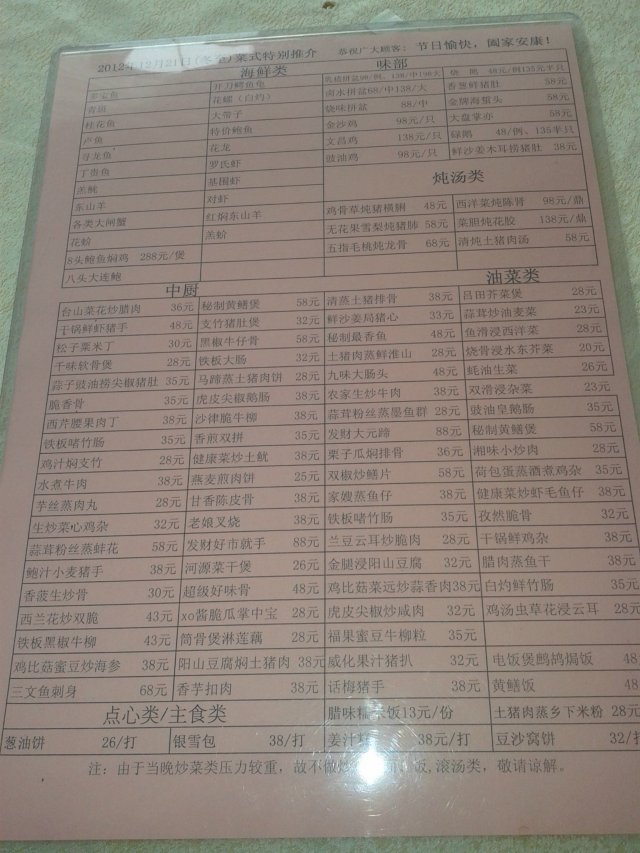 2012年12月21日(冬至)菜式特别推介 恭祝广大顾客：节日愉快，阖家安康！
海鲜类 味部
花螺（白灼） 卤水拼盆68/中138/大 香葱鲜猪肚 58元
大带子 烧味拼盆 88/中 金牌海蜇头 58元
桂花鱼 特价鲍鱼 金沙鸡 98元/只 大盘掌亦 58元
卢鱼 花龙 文昌鸡 138元/只 碌鹅 48/例、135半只
寻龙鱼 罗氏虾 豉油鸡 98元/只 鲜沙姜木耳捞猪肚 38元
丁贵鱼 基围虾 炖汤类
羔虢 对虾
东山羊 红焖东山羊 鸡骨草炖猪横脷 48元 西洋菜炖陈肾 98元/鼎
各类大闸蟹 羔蚧 无花果雪梨炖猪肺 58元 菜胆炖花胶 138元/鼎
花蚧 五指毛桃炖龙骨 68元 清炖土猪肉汤 58元
8头鲍鱼焖鸡 288元/煲
八头大连鲍
中厨 油菜类
台山菜花炒腊肉 36元 秘制黄鳝煲 58元 清蒸土猪排骨 38元 吕田芥菜煲 28元
干锅鲜虾猪手 48元 支竹猪肚煲 32元 鲜沙姜局猪心 33元 蒜茸炒油麦菜 23元
松子粟米丁 30元 黑椒牛仔骨 58元 秘制最香鱼 48元 鱼滑浸西洋菜 28元
千味软骨煲 28元 铁板大肠 32元 土猪肉蒸鲜淮山 28元 烧骨浸水东芥菜 20元
蒜子豉油捞尖椒猪肚 35元 马蹄蒸土猪肉饼 28元 九味大肠头 48元 蚝油生菜 26元
脆香骨 35元 虎皮尖椒鹅肠 38元 农家生炒牛肉 38元 双滑浸杂菜 23元
西芹腰果肉丁 38元 沙律脆牛柳 38元 蒜茸粉丝蒸墨鱼群 28元 豉油皇鹅肠 35元
铁板啫竹肠 35元 香煎双拼 35元 发财大元蹄 88元 秘制黄鳝煲 58元
鸡汁焖支竹 28元 健康菜炒土鱿 38元 栗子瓜焖排骨 36元 湘味小炒肉 28元
水煮牛肉 38元 燕麦煎肉饼 25元 双椒炒鳝片 58元 荷包蛋蒸酒煮鸡杂 35元
芋丝蒸肉丸 28元 甘香陈皮骨 38元 家嫂蒸鱼仔 38元 健康菜炒虾毛鱼仔 38元
生炒菜心鸡杂 32元 老娘叉烧 38元 铁板啫竹肠 35元 孜然脆骨 32元
蒜茸粉丝蒸蚌花 58元 发财好市就手 88元 兰豆云耳炒脆肉 28元 干锅鲜鸡杂 38元
鲍汁小麦猪手 38元 河源菜干煲 26元 金腿浸阳山豆腐 32元 腊肉蒸鱼干 38元
香菠生炒骨 30元 超级好味骨 48元 鸡比菇菜远炒蒜香肉38元 白灼鲜竹肠 35元
西兰花炒双脆 43元 xo酱脆瓜掌中宝 28元 虎皮尖椒炒咸肉 32元 鸡汤虫草花浸云耳 28元
铁板黑椒牛柳 43元 筒骨煲淋莲藕 28元 福果蜜豆牛柳粒 35元
鸡比菇蜜豆炒海参 38元 阳山豆腐焖土猪肉 38元 威化果汁猪扒 32元 电饭煲鹧鸪焗饭 48
三文鱼刺身 68元 香芋扣肉 38元 话梅猪手 38元 黄鳝饭 48
点心类/主食类 腊味糯米饭13元/份 土猪肉蒸乡下米粉 28元
葱油饼 26/打 银雪包 38/打 姜汁糕 38元/打 豆沙窝饼 32/打
注：由于当晚炒菜类压力较重，故不做炒 饭,滚汤类，敬请谅解。